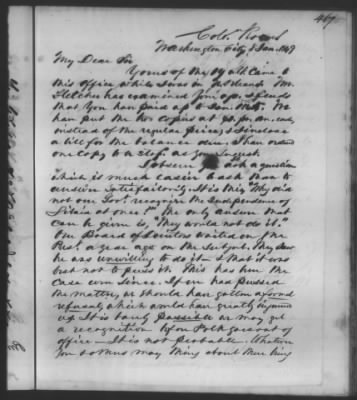 467
Colo. Rooms
Washington City, 8 Jan. 1849
My Dear Sir
Yours of the 29 ult. came to
this office while I was in
has examined you a/c, & finds
that you have paid up to Jan.
has put the two copies at
instead of the regular price, & I inclose
a bill for the balance due. I have ordered
one copy to be stop'd as you suggest.
I observe you ask a question
which is much easier to ask than to
answer satisfactorily. It is this "Why did
not our Gov. recognize the Independence of
Liberia at once?" The only answer that
can be given is, "They would not do it."
Our Board of Directors waited on the
Pres. a year ago on the subject. They
he was unwilling to do it & that it was
best not to press it. This has been the
case ever since. If we had pressed
the matter, we should have gotten a formal
refusal, which would have greatly injured
us. It is barely possible we may get
a recognition before Polk goes out of
office. It is not probable. Whatever
you & others may think about there being